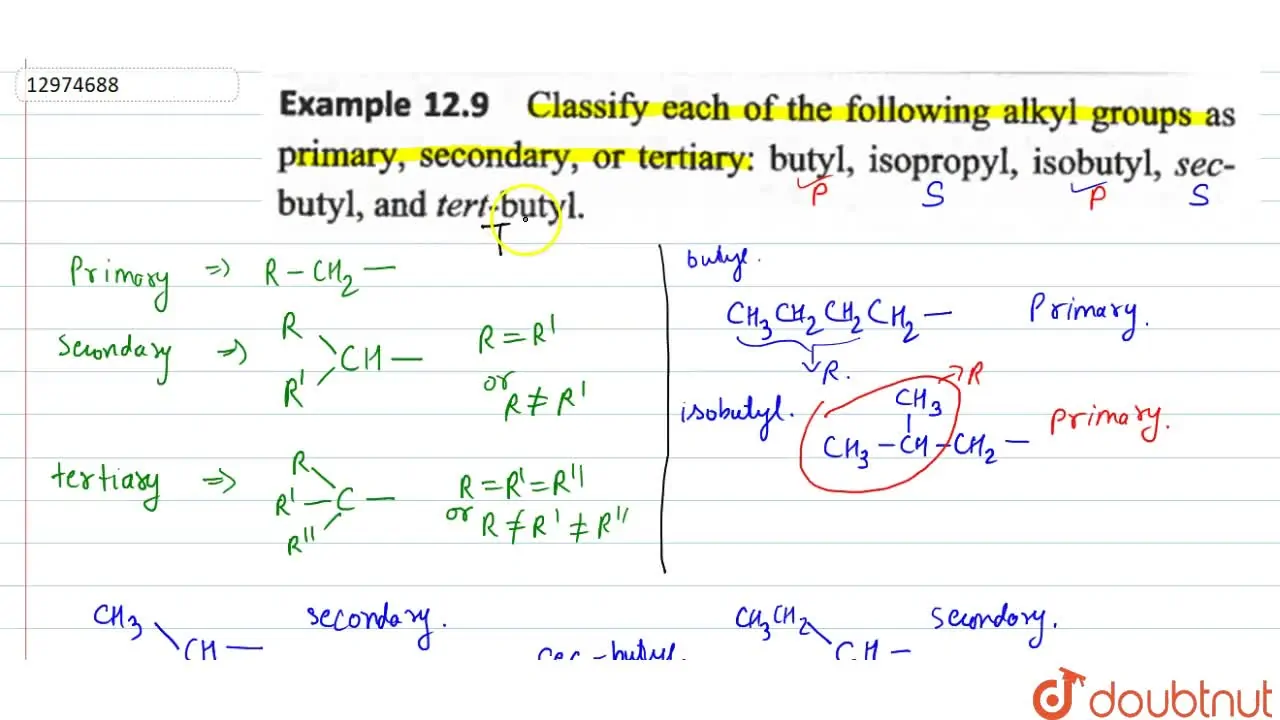 12974688
Example 12.9 Classify each of the following alkyl groups as
primary, secondary, or tertiary: butyl, isopropyl, isobutyl, sec-
P S P S
butyl, and tert-butyl.
T
Primary ⇒ R – CH2 —
Secondary ⇒ R
R' CH — R = R'
or
R ≠ R'
tertiary ⇒ R
R' — C — R = R' = R''
R'' or R ≠ R' ≠ R''
butyl.
CH3 CH2 CH2 CH2 — Primary.
R.
isobutyl. CH3 R
CH3 – CH – CH2 — Primary.
CH3 secondary.
CH —
sec-butyl.
CH3CH2 secondary.
CH —
doubtnut